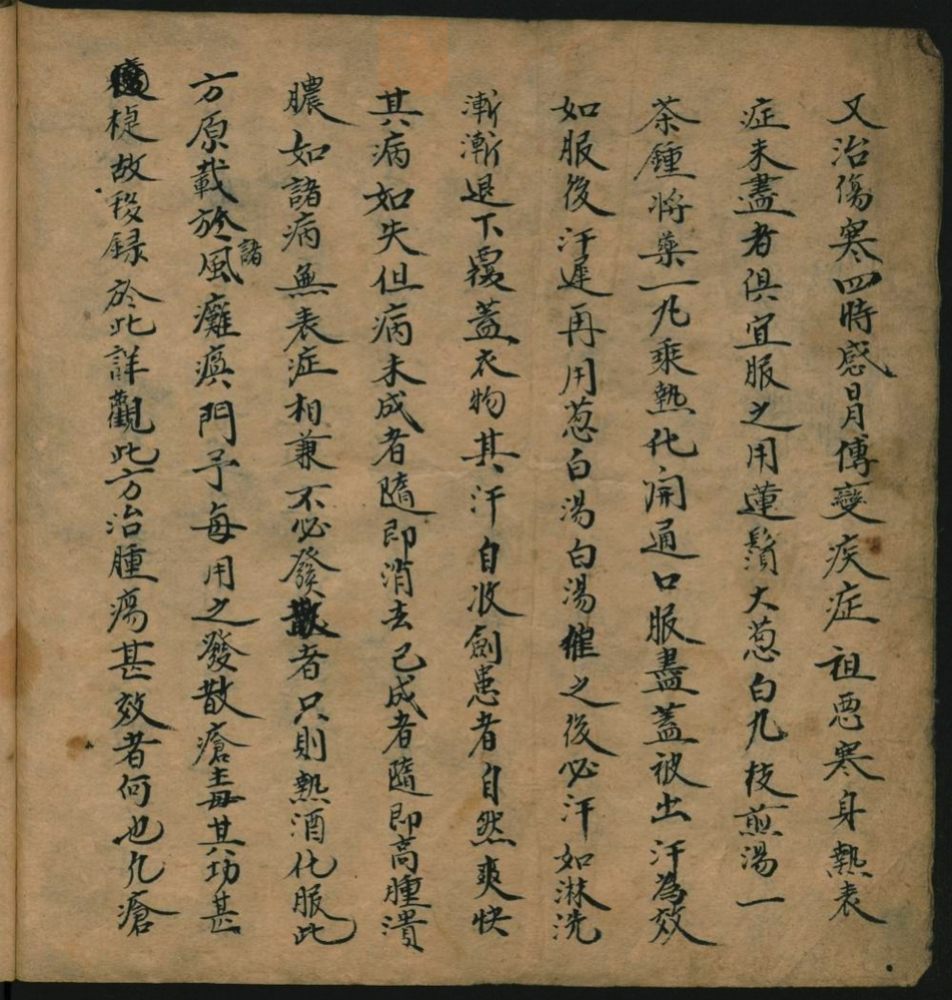 又治傷寒四時感冒傳變疾症祖惡寒身熱表
症未盡者俱宜服之用蓮鬚大葱白九枝煎湯一
茶鍾將藥一丸乘熱化開通口服盡蓋被出汗為效
如服後汗遲再用葱白湯白湯催之後必汗如淋洗
漸漸退下覆蓋衣物其汗自收劍患者自然爽快
其病如失但病未成者隨即消去已成者隨即高腫潰
膿如諸病無表症相兼不必發散者只則熱酒化服此
方原載於諸風癱瘓門予每用之發散瘡毒其功甚
㨗故移録於此詳觀此方治腫瘍甚效者何也凡瘡